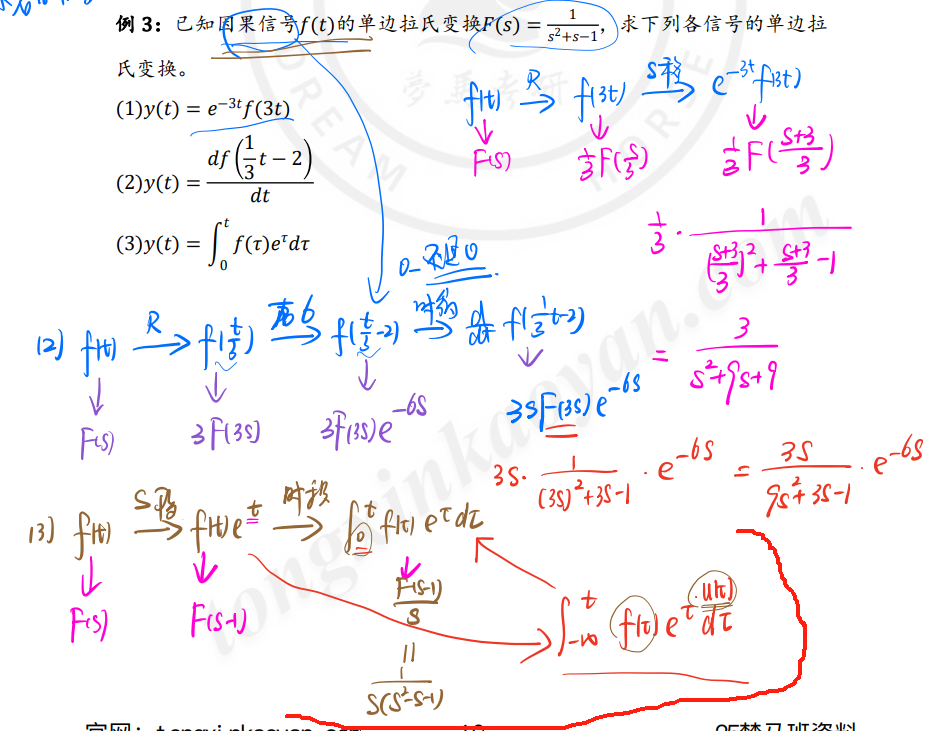 例 3：已知因果信号f(t)的单边拉氏变换F(s) = 1/(s²+s−1)，求下列各信号的单边拉
氏变换。
(1)y(t) = e^{−3t}f(3t)
(2)y(t) = df(1/3 t − 2)/dt
(3)y(t) = ∫_0^t f(τ)e^τ dτ
f(t) →R f(3t) →S移 e^{-3t}f(3t)
F(s) 1/3 F(s/3) 1/3 F((s+3)/3)
1/3 · 1/(((s+3)/3)² + (s+3)/3 − 1)
= 3/(s²+9s+9)
0_ 不是0
(2) f(t) →R f(t/3) → 6 f(t/3−2) →时微 d/dt f(1/3 t−2)
F(s) 3F(3s) 3F(3s)e^{-6s} 3sF(3s)e^{-6s}
3s · 1/((3s)²+3s−1) · e^{-6s} = 3s/(9s²+3s−1) · e^{-6s}
(3) f(t) →S移 f(t)e^t →时积 ∫_0^t f(τ)e^τ dτ
F(s) F(s-1) F(s-1)/s
∫_{-∞}^t f(τ)e^τ · u(τ) dτ
||
1/(s(s²-s-1))
DREAM
HORE
梦马考研
tongxinkaoyan.com